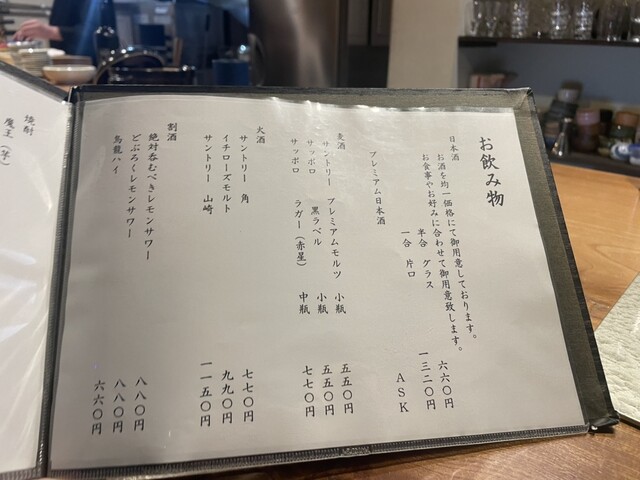 お飲み物
日本酒
お酒を均一価格にて御用意しております。
お食事やお好みに合わせて御用意致します。
半合 グラス 六六〇円
一合 片口 一三二〇円
プレミアム日本酒 ASK
麦酒
サントリー プレミアムモルツ 小瓶 五五〇円
サッポロ 黒ラベル 小瓶 五五〇円
サッポロ ラガー(赤星) 中瓶 七七〇円
火酒
サントリー 角 七七〇円
イチローズモルト 九九〇円
サントリー 山崎 一一五〇円
割酒
絶対呑むべきレモンサワー 八八〇円
どぶろくレモンサワー 八八〇円
烏龍ハイ 六六〇円
焼酎
魔王(芋)